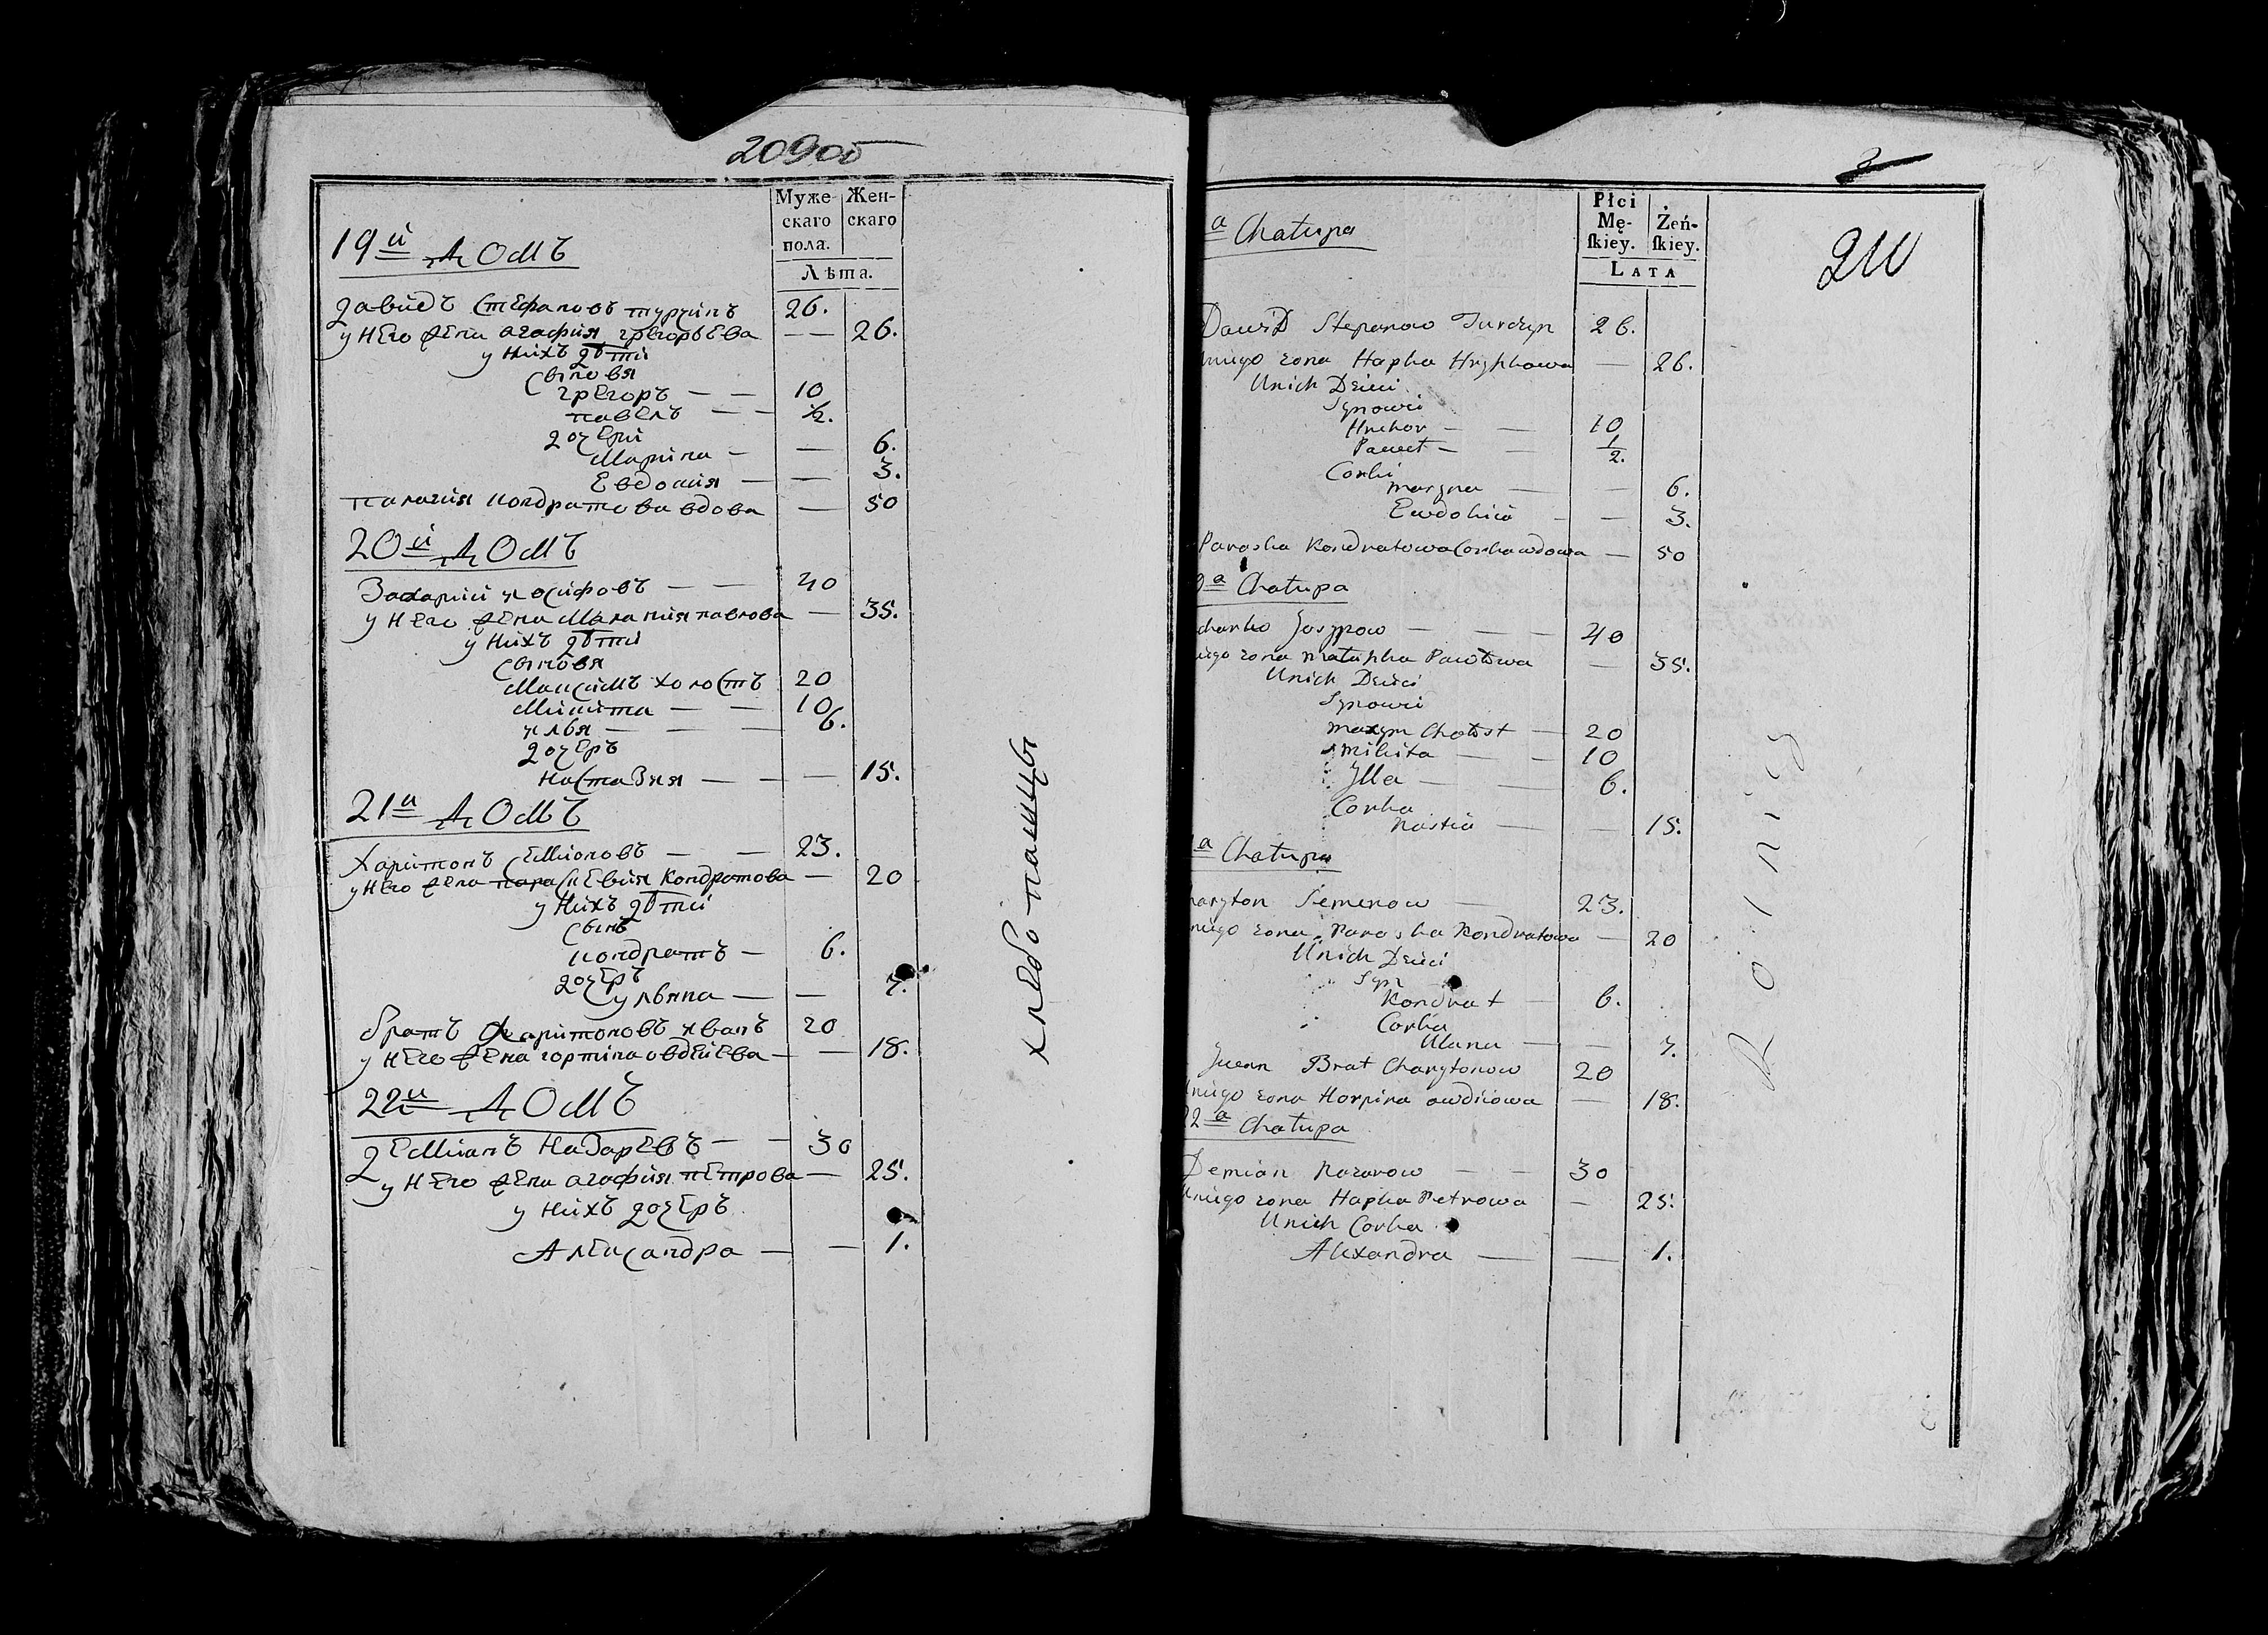 209об
Муже-
скаго
пола.
Жен-
скаго
Лѣта.
19й Домъ
Давидъ Стефановъ турчинъ 26.
у него жена агафия грегорьева — 26.
у нихъ дѣти
Сынові
грегоръ — — 10
павелъ — — ½.
дочери
Марина — — 6.
Евдокия — — 3.
палагия кондратова вдова — 50
20й Домъ
Захарий иосифовъ — — 40
у него жена Мелания павлова — 35.
у нихъ дѣти
Сыновя
Максимъ холостъ 20
Микита — — 10
илья — — — 6.
дочеръ
настазия — — — 15.
21й Домъ
Харитонъ Семионовъ — — 23.
у него жена параскевия Кондратова — 20
у нихъ дѣти
Сынъ
кондратъ — 6.
дочеръ
ульяна — — 7.
братъ Харитоновъ иванъ 20
у него жена горпина овдеиева — — 18.
22й Домъ
Демианъ Назаревъ — — 30
у него жена агафия петрова — 25.
у нихъ дочеръ
Александра — — 1.
хлебо пашцы
Płci
Mę-
ſkiey.
Żeń-
ſkiey.
LATA
211
a Chałupa
Dawid Stepanow Turczyn 26.
niego żona Hapka Hryhkowa — 26.
Unich Dzieci
Synowi
Hrehor — — 10
Paweł — — ½.
Corki
Maryna — — 6.
Ewdokia — — 3.
Paraska Kondratowa Corka wdowa — 50
0a Chałupa
charko Josypow — — — 40
iego żona Matuhka Pawłowa — 35.
Unich Dzieci
Synowi
Maxym Chołost — 20
Mikita — — 10
Jlla — — 6.
Corka
Nastia — — 15.
a Chałupa
haryton Semenow — 23.
niego żona Paraska Kondratowa — 20
Unich Dzieci
Syn
Kondrat — 6.
Corka
Ulana — — 7.
Jwan Brat Charytonow 20
niego żona Horpina owdiiowa — 18.
22a Chałupa
Demian Nazarow — — 30
Uniego żona Hapka Petrowa — 25.
Unich Corka
Alexandra — — 1.
Rolnicy